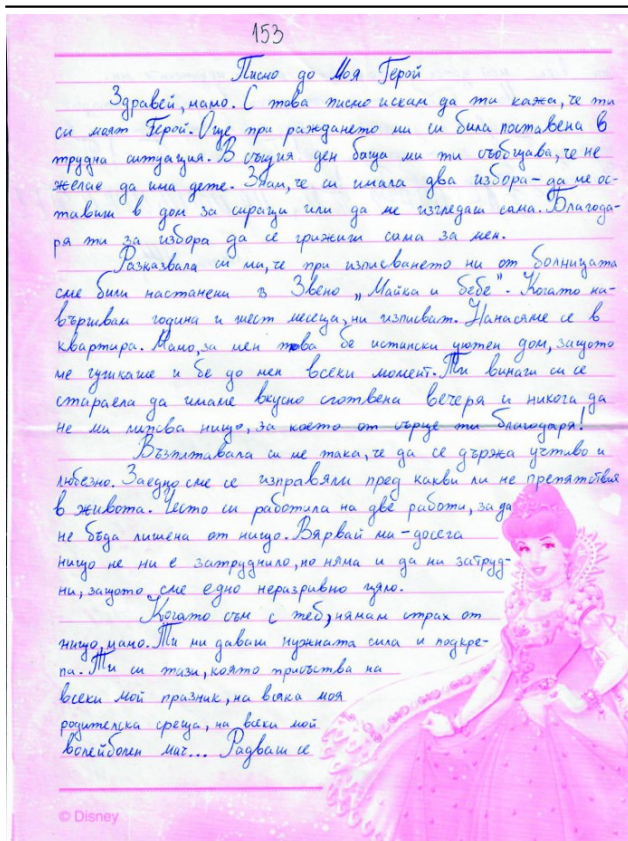 153
Писмо до Моя Герой
Здравей, мамо. С това писмо искам да ти кажа, че ти
си моят Герой. Още при раждането ми си била поставена в
трудна ситуация. В същия ден баща ми ти съобщава, че не
желае да има дете. Знам, че си имала два избора - да ме ос-
тавиш в дом за сираци или да ме изгледаш сама. Благода-
ря ти за избора да се грижиш сама за мен.
Разказвала си ми, че при изписването ни от болницата
сме били настанени в Звено „Майка и бебе". Когато на-
вършвам година и шест месеца, ни изписват. Нанасяме се в
квартира. Мамо, за мен това бе истински уютен дом, защото
ме гушкаше и бе до мен всеки момент. Ти винаги си се
стараела да имаме вкусно сготвена вечеря и никога да
не ми липсва нищо, за което от сърце ти благодаря!
Възпитавала си ме така, че да се държа учтиво и
любезно. Заедно сме се изправяли пред какви ли не препятствия
в живота. Често си работила на две работи, за да
не бъда лишена от нищо. Вярвай ми - досега
нищо не ни е затруднило, но няма и да ни затруд-
ни, защото сме едно неразривно цяло.
Когато съм с теб, нямам страх от
нищо, мамо. Ти ми даваш нужната сила и подкре-
па. Ти си тази, която присъства на
всеки мой празник, на всяка моя
родителска среща, на всеки мой
волейболен мач... Радваш се
© Disney